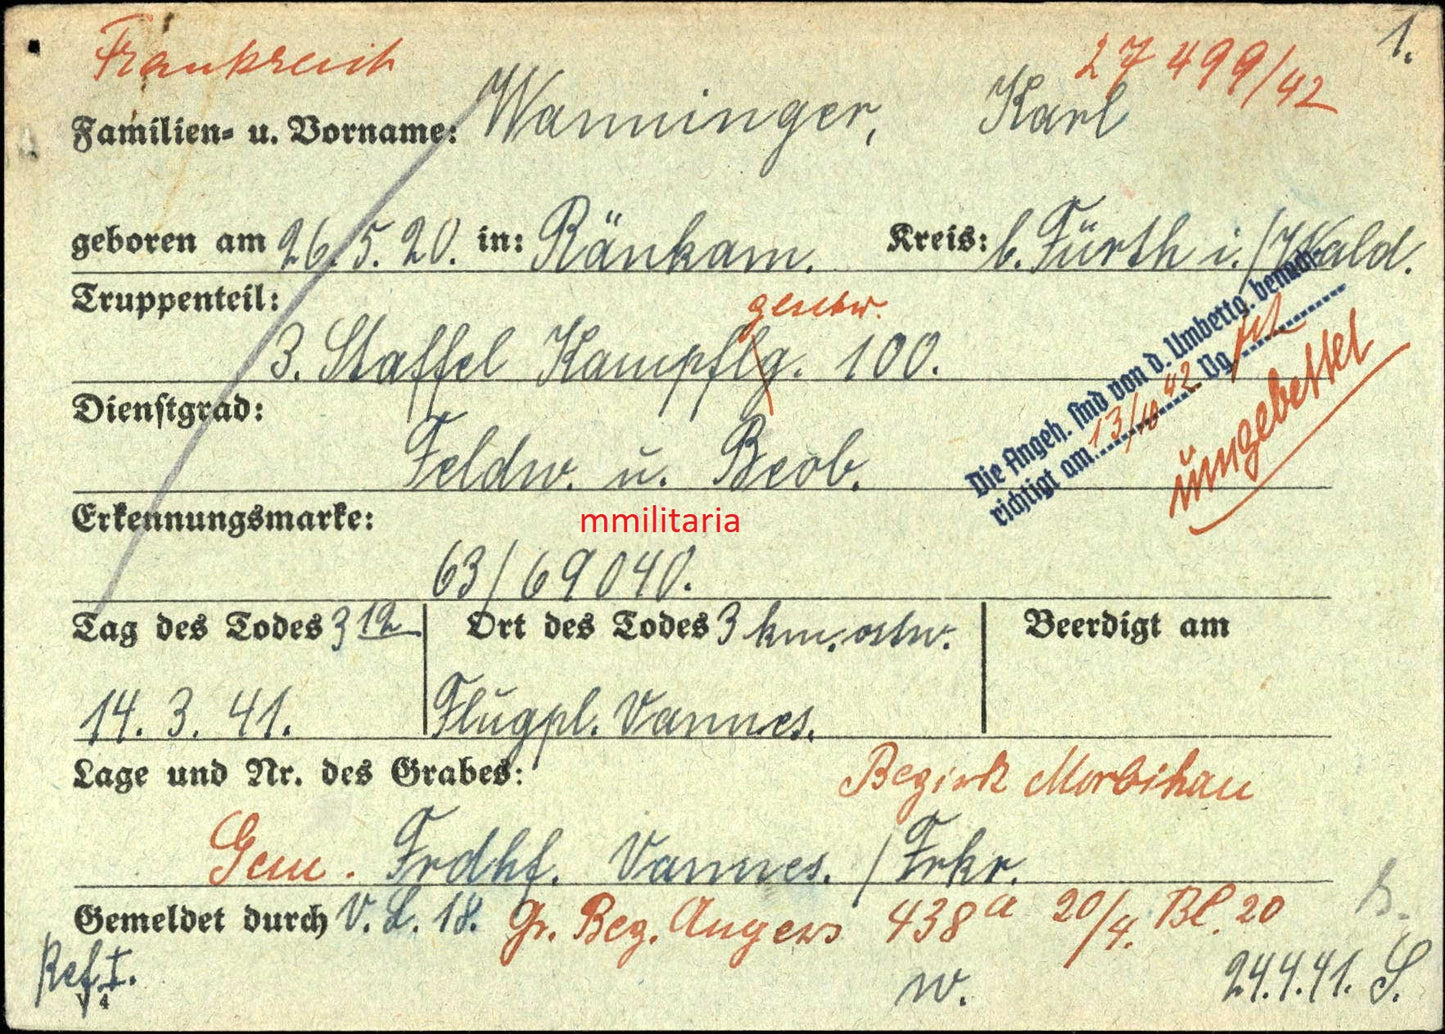 1.
Frankreich 27499/42
Familien- u. Vorname: Wanninger, Karl
geboren am 26.5.20. in: Ränkam. Kreis: b. Fürth i./Wald.
Truppenteil:
geschw.
3. Staffel Kampflg. 100.
Die Angeh. sind von d. Umbettg. benach-
richtigt am 13/10 42 Vg.
umgebettet
Dienstgrad:
Feldw. u. Beob.
Erkennungsmarke:
mmilitaria
63/69040.
Tag des Todes Ort des Todes 3 km. ostw. Beerdigt am
14.3.41. Flugpl. Vannes.
Lage und Nr. des Grabes: Bezirk Morbihan
Gem. Frdhf. Vannes. / Frkr.
Gemeldet durch V.L. 18. Gr. Bez. Angers 438a 20/4. Bl. 20
Ref. I. w. 24.4.41. S.
V 4